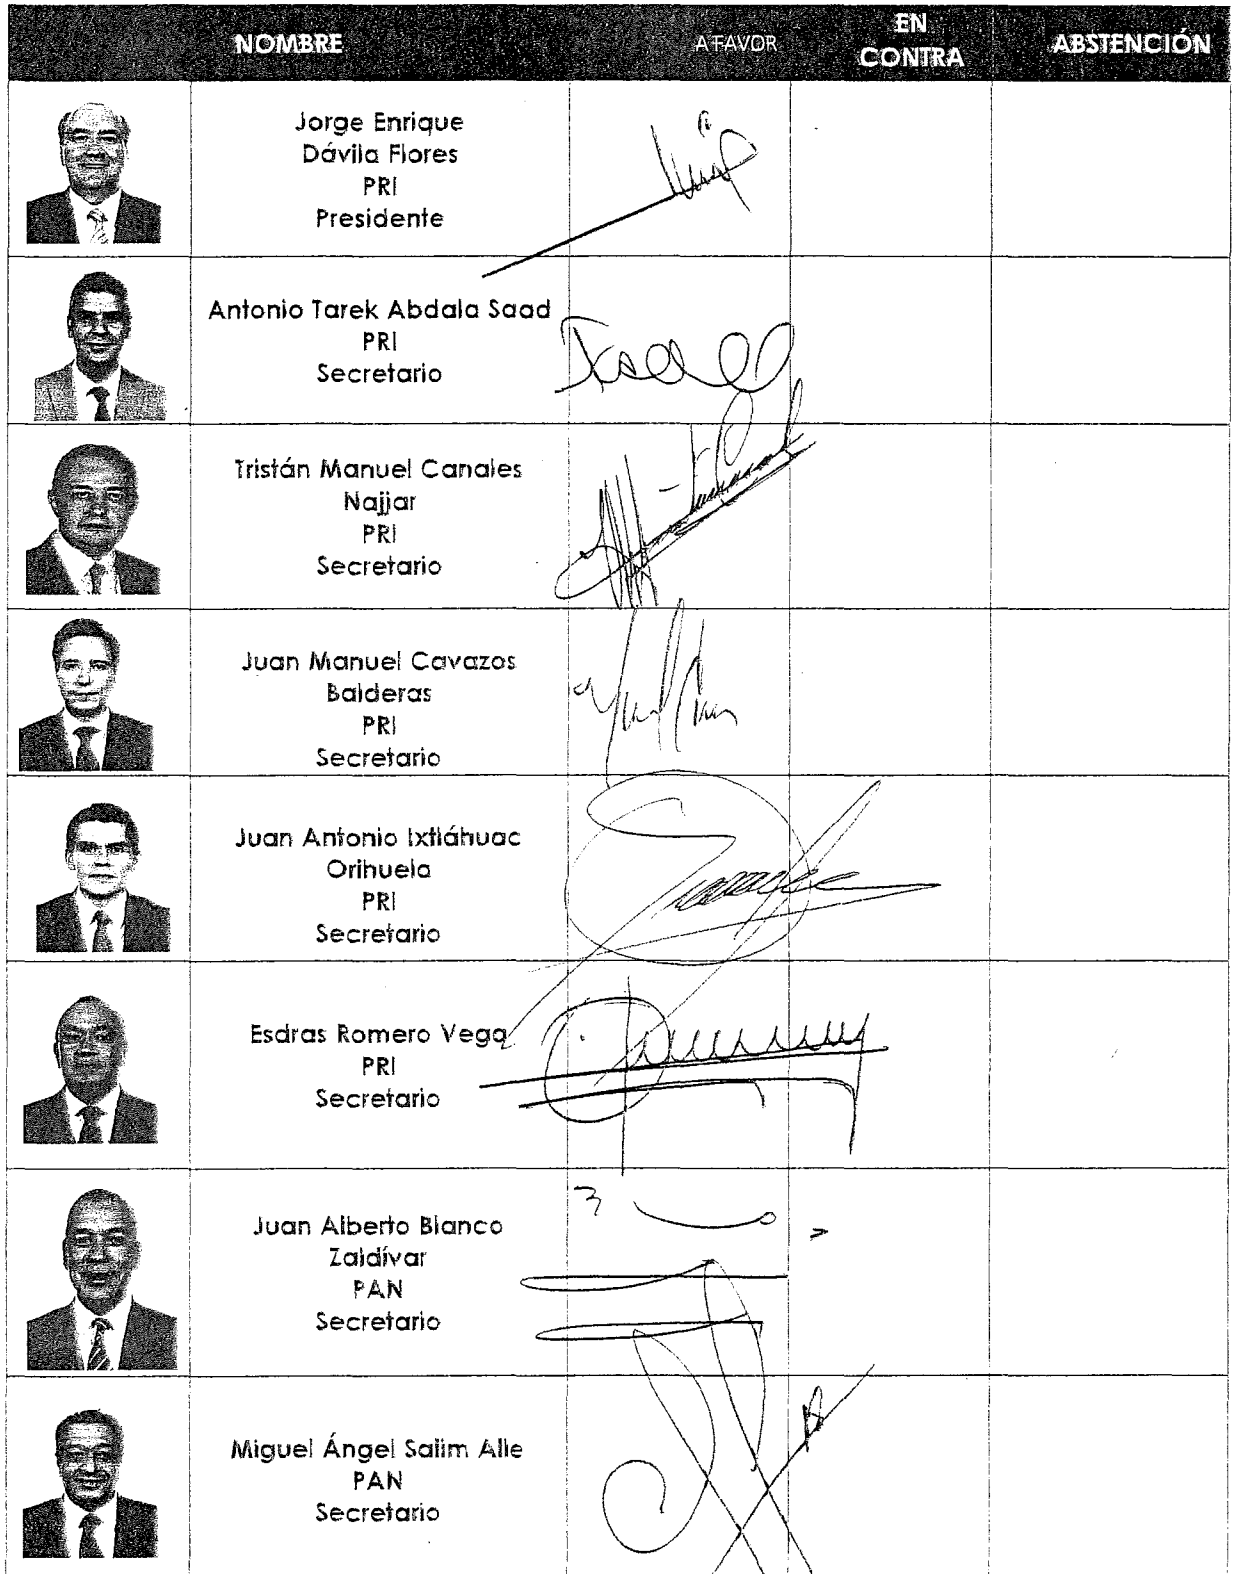 NOMBRE
A FAVOR
EN
CONTRA
ABSTENCIÓN
Jorge Enrique
Dávila Flores
PRI
Presidente
Antonio Tarek Abdala Saad
PRI
Secretario
Tristán Manuel Canales
Najjar
PRI
Secretario
Juan Manuel Cavazos
Balderas
PRI
Secretario
Juan Antonio Ixtláhuac
Orihuela
PRI
Secretario
Esdras Romero Vega
PRI
Secretario
Juan Alberto Blanco
Zaldívar
PAN
Secretario
Miguel Ángel Salim Alle
PAN
Secretario